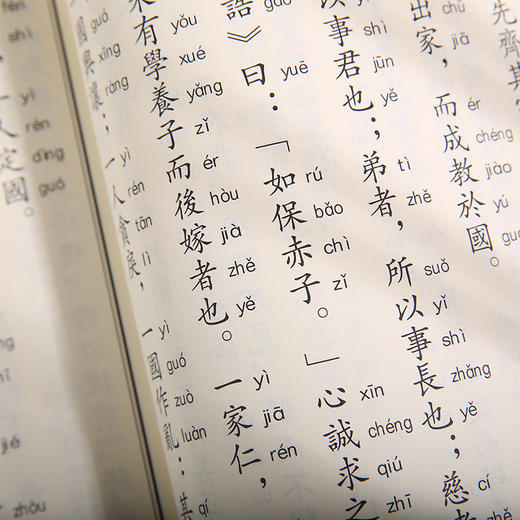 先齊其
出家，而成教於國。
chū jiā ér chéng jiào yú guó
事君也；弟者，所以事長也；慈
shì jūn yě tì zhě suǒ yǐ shì zhǎng yě cí
誥》曰：「如保赤子。」心誠求之
yuē rú bǎo chì zǐ xīn chéng qiú zhī
有學養子而後嫁者也。一家仁，
yǒu xué yǎng zǐ ér hòu jià zhě yě yì jiā rén
國興讓；一人貪戾，一國作亂：其
guó xīng ràng yì rén tān lì yì guó zuò luàn qí
人定國。
yì rén dìng guó
jié
zhòu